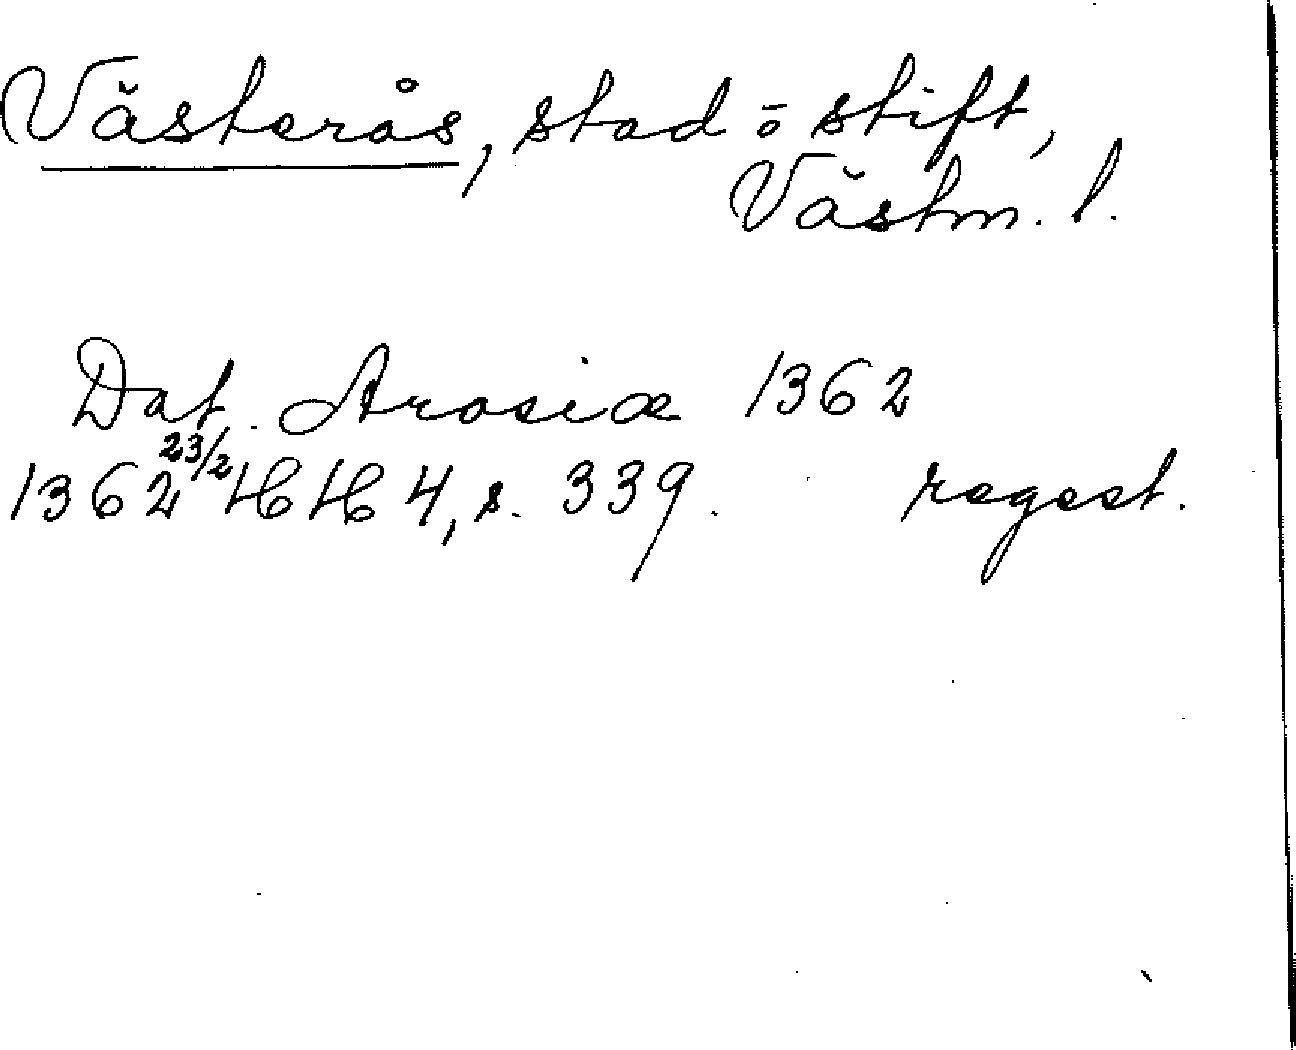 Västerås, stad o stift,
Västm. l.
Dat. Arosiæ 1362
1362 23/2 HH 4, s. 339. regest.